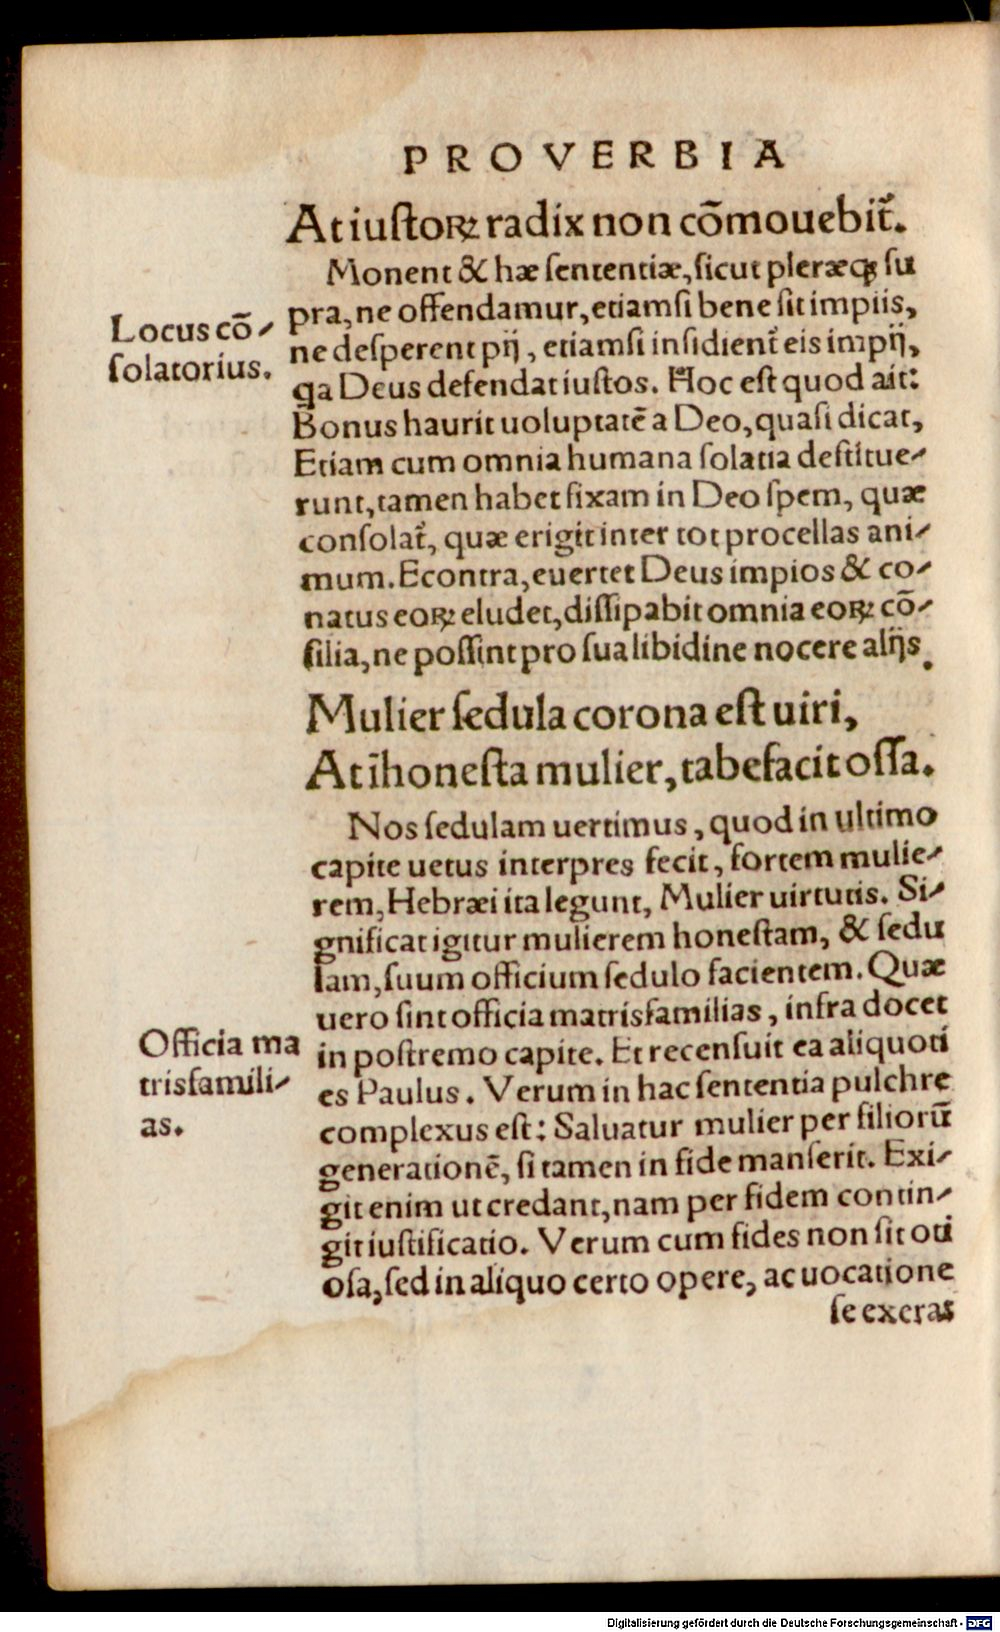 PROVERBIA
At iustoꝝ radix non cōmouebit᷑.
Monent & hæ sententiæ, sicut pleræqꝫ su
pra, ne offendamur, etiamsi bene sit impiis,
Locus cō-
ne desperent pij, etiamsi insidient᷑ eis impij,
solatorius.
qa Deus defendat iustos. Hoc est quod ait:
Bonus haurit uoluptatē a Deo, quasi dicat,
Etiam cum omnia humana solatia destitue-
runt, tamen habet fixam in Deo spem, quæ
consolat᷑, quæ erigit inter tot procellas ani-
mum. Econtra, euertet Deus impios & co-
natus eoꝝ eludet, dissipabit omnia eoꝝ cō-
silia, ne possint pro sua libidine nocere alijs.
Mulier sedula corona est uiri,
At īhonesta mulier, tabefacit ossa.
Nos sedulam uertimus, quod in ultimo
capite uetus interpres fecit, fortem mulie-
rem, Hebræi ita legunt, Mulier uirtutis. Si-
gnificat igitur mulierem honestam, & sedu
lam, suum officium sedulo facientem. Quæ
uero sint officia matrisfamilias, infra docet
Officia ma
trisfamili-
as.
in postremo capite. Et recensuit ea aliquoti
es Paulus. Verum in hac sententia pulchre
complexus est: Saluatur mulier per filiorū
generationē, si tamen in fide manserit. Exi-
git enim ut credant, nam per fidem contin-
git iustificatio. Verum cum fides non sit oti
osa, sed in aliquo certo opere, ac uocatione
se exeras
Digitalisierung gefördert durch die Deutsche Forschungsgemeinschaft - DFG